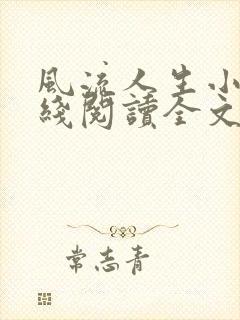 風流人生小
綫閱讀全文
常志青